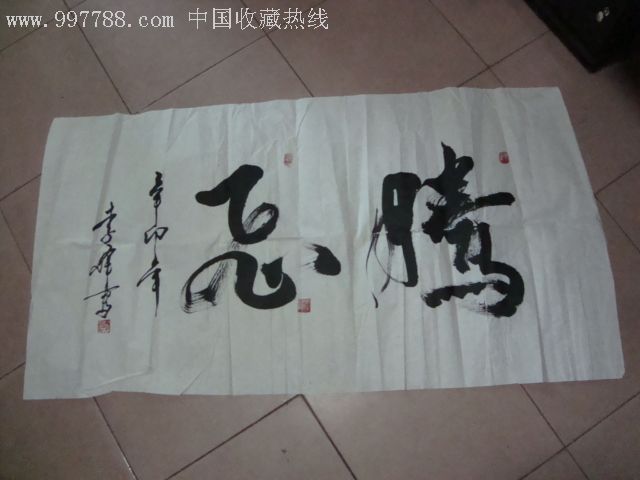 www.997788.com 中国收藏热线
騰飛
辛卯年
李 書